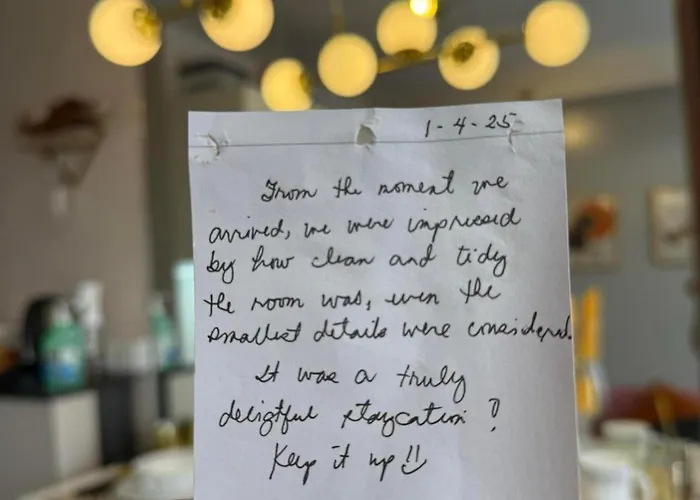 1-4-25
From the moment we
arrived, we were impressed
by how clean and tidy
the room was, even the
smallest details were considered.
It was a truly
deligtful staycation !
Keep it up!!